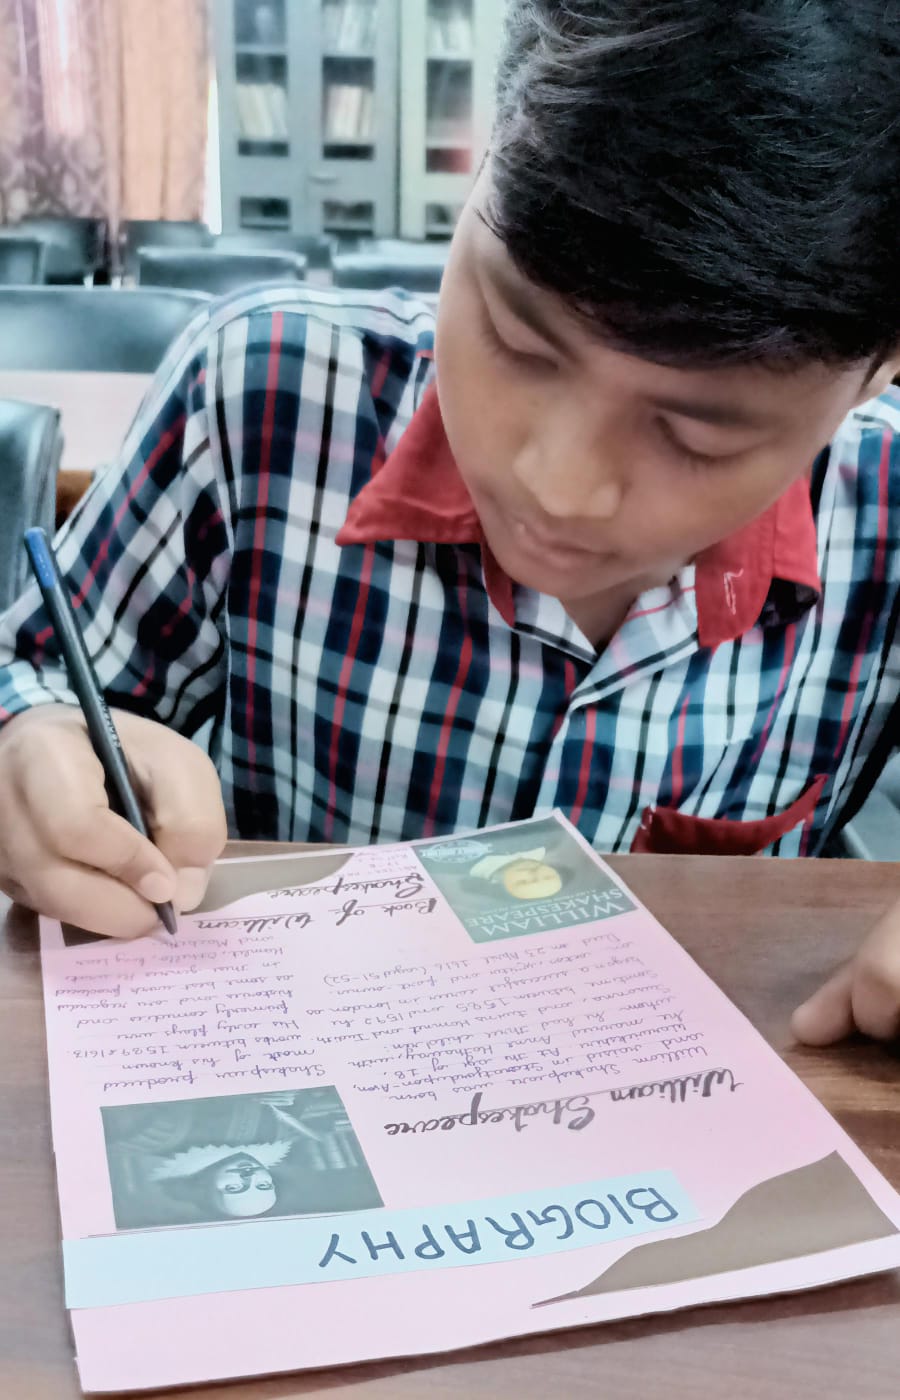 BIOGRAPHY
William Shakespeare
William Shakespeare was born
and raised in Stratfordupon-Avon,
Warwickshire. At the age of 18,
he married Anne Hathaway, with
whom he had three children:
Susanna, and twins Hamnet and Judith.
Sometime between 1585 and 1592 he
began a successful career in London as
an actor, writer and part-owner.
Died on 23 April 1616 (aged 51-52)
Shakespear produced
most of his known
works between 1589 & 1613.
His early plays were
primarly comedies and
histories and are regarded
as some best work produced
in their genres. He wrote
Hamlet, Othello, King Lear
and Macbeth.
WILLIAM
SHAKESPEARE
Book of William
Shakespeare.